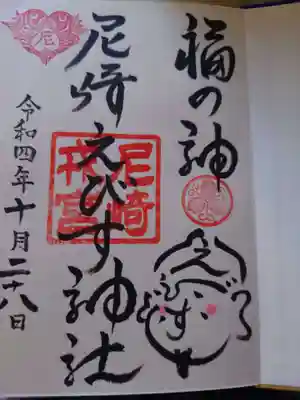 福の神
尼崎えびす神社
尼崎
戎宮
令和四年十月二十八日